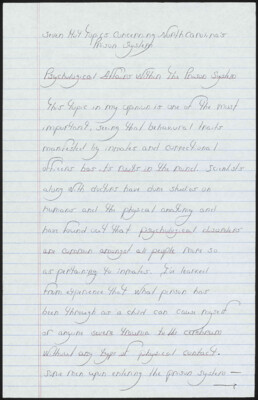 Seven Hot Topics Concerning North Carolina's
Prison System
Psychological Affairs Within The Prison System
This topic in my opinion is one of the most
important, seeing that behavioural traits
manifested by inmates and correctional
officers has its roots in the mind. Scientists
along with doctors have done studies on
humans and the physical anatomy and
have found out that psychological disorders
are common amongst all people more so
as pertaining to inmates. I've learned
from experience that what person has
been through as a child can cause myself
or anyone severe trauma to the
without any type of physical contact.
Some men upon entering the prison system —